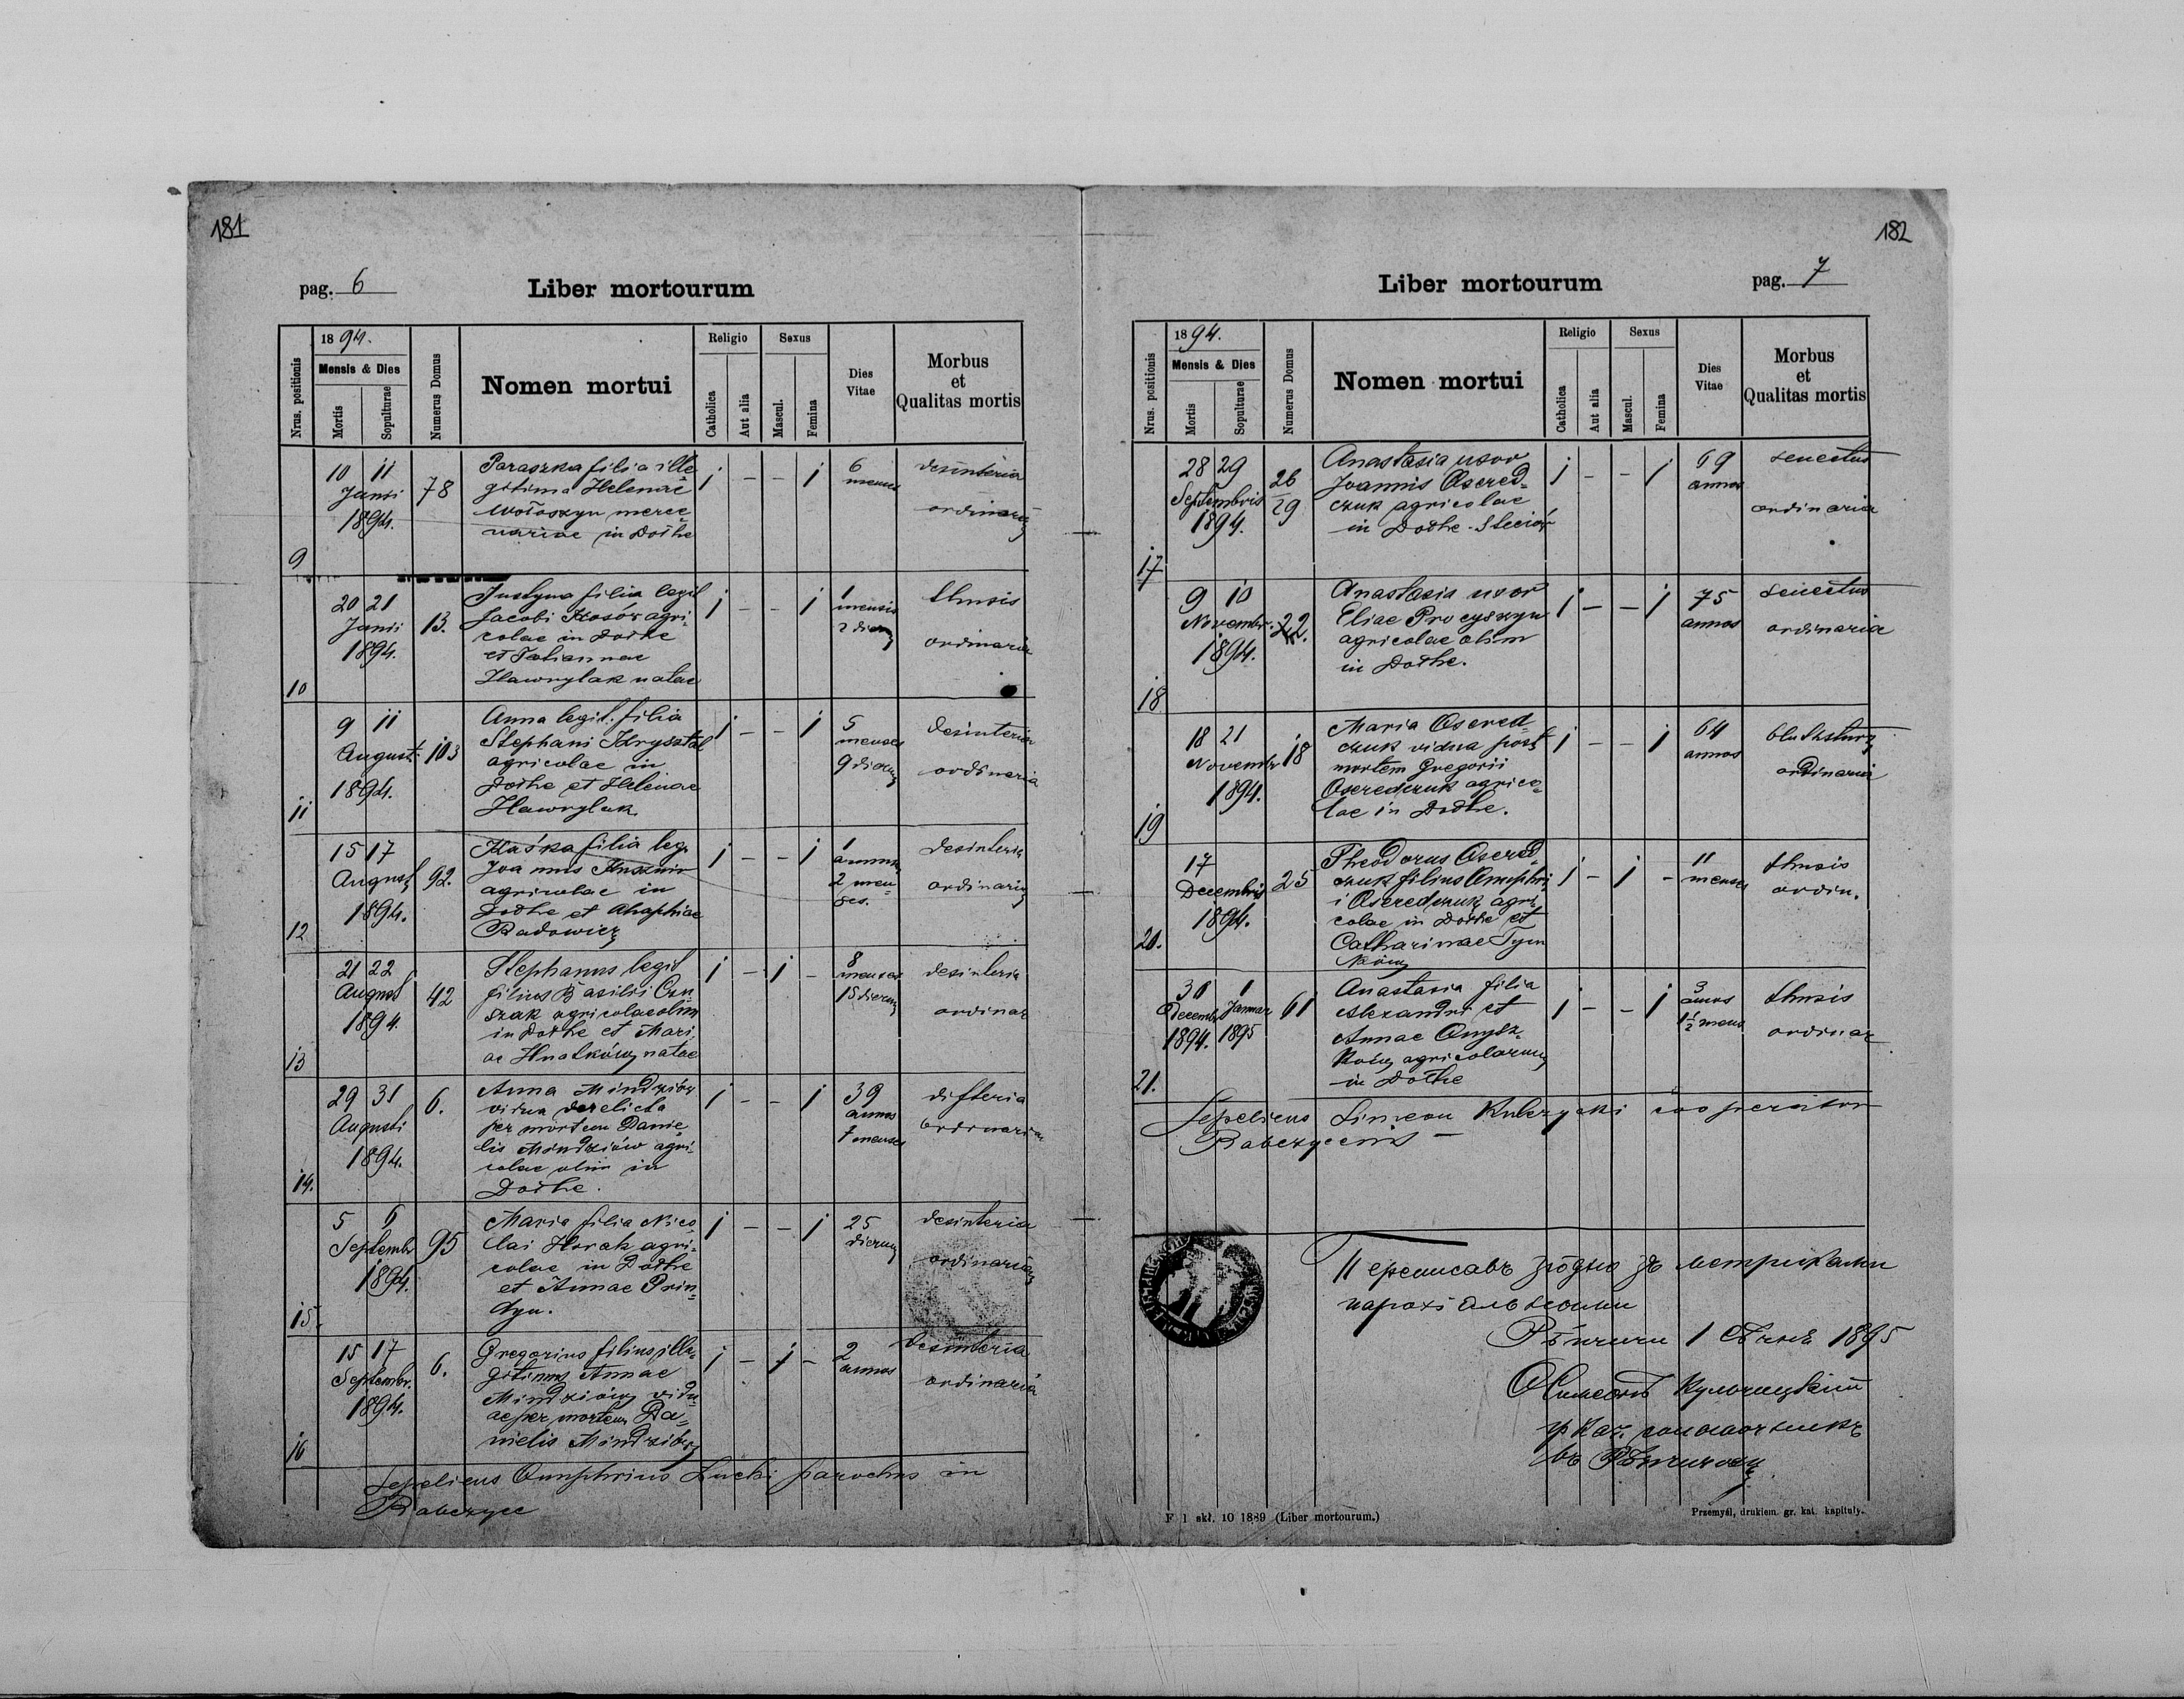 181
pag. 6
Liber mortourum
Nrus. positionis
1894.
Mensis & Dies
Mortis
Sopulturae
Numerus Domus
Nomen mortui
Religio
Catholica
Aut alia
Sexus
Mascul.
Femina
Dies
Vitae
Morbus
et
Qualitas mortis
9
10 11
Junii
1894.
78
Paraszka filia ille
gitima Helenae
Wołoszyn merce
nariae in Dołhe
1 - - 1
6
menses
desinteria
ordinaria
10
20 21
Junii
1894.
13.
Justyna filia legit
Jacobi Kosów agri-
colae in Dołhe
et Tatiannae
Hawrylak natae
1 - - 1
1
mensis
2 dierum
thusis
ordinaria
11
9 11
August.
1894.
103
Anna legit. filia
Stephani Krysztal
agricolae in
Dołhe et Helenae
Hawrylak
1 - - 1
5
menses
9 dierum
desinteria
ordinaria
12
15 17
August
1894.
92.
Kaśka filia leg.
Joannis
agricolae in
Dołhe et Ahaphiae
Radowicz
1 - - 1
1
annus
2 men-
ses.
desinteria
ordinaria
13
21 22
August
1894
42
Stephanus legit
filius Basilii
agricolae olim
in Dołhe et Mari
ae Hnatków natae
1 - 1 -
8
menses
15 dierum
desinteria
ordinar
14.
29 31
Augusti
1894.
6.
Anna Mindziów
vidua derelicta
per mortem Danie
lis Mindziów agri-
colae olim in
Dołhe.
1 - - 1
39
annos
7 menses
difteria
ordinaria
15.
5 6
Septembr
1894.
95
Maria filia Nico
lai Horak agri-
colae in Dołhe
et Annae Prin-
dyn.
1 - - 1
25
dierum
desinteria
ordinaria
16
15 17
Septembr.
1894.
6.
Gregorius filius ille-
gitimus Annae
Mindziów vidu-
ae per mortem Da-
nielis Mindziów
1 - 1 -
2
annos
desinteria
ordinaria
Sepeliens Onuphrius Łucki parochus in
Rabczyce
182
Liber mortourum
pag. 7
Nrus. positionis
1894.
Mensis & Dies
Mortis
Sopulturae
Numerus Domus
Nomen mortui
Religio
Catholica
Aut alia
Sexus
Mascul.
Femina
Dies
Vitae
Morbus
et
Qualitas mortis
17
28 29
Septembris
1894.
26
29
Anastasia uxor
Joannis Osered-
czuk agricolae
in Dołhe
1 - - 1
69
annos
senectus
ordinaria
18
9 10
Novembr.
1894.
22.
Anastasia uxor
Eliae Procyszyn
agricolae olim
in Dołhe.
1 - - 1
75
annos
senectus
ordinaria
19
18 21
Novembr
1894.
18
Maria Osered
czuk vidua post
mortem Gregorii
Oseredczuk agrico-
lae in Dołhe.
1 - - 1
64
annos
bluthsturz
ordinaria
20.
17
Decembris
1894.
25
Theodorus Osered-
czuk filius Onuphri
i Oseredczuk agri
colae in Dołhe et
Catharinae Tym
ków
1 - 1 -
11
menses
thusis
ordin.
21.
30 1
Decembr Januar
1894. 1895
61
Anastasia filia
Alexandri et
Annae Onysz-
ków agricolarum
in Dołhe
1 - - 1
3
annos
1½ mens
thusis
ordinar
Sepeliens Simeon Kulczycki cooperator
Rabczycensis -
Переписавъ згодно зъ метриками
парохіальными
Рѣпчичи 1 Сѣчня 1895
О Симеонъ Кульчицкій
гр кат. сопомочникъ
въ
F 1 skł. 10 1889 (Liber mortourum.)
Przemyśl, drukiem. gr. kat. kapituły.